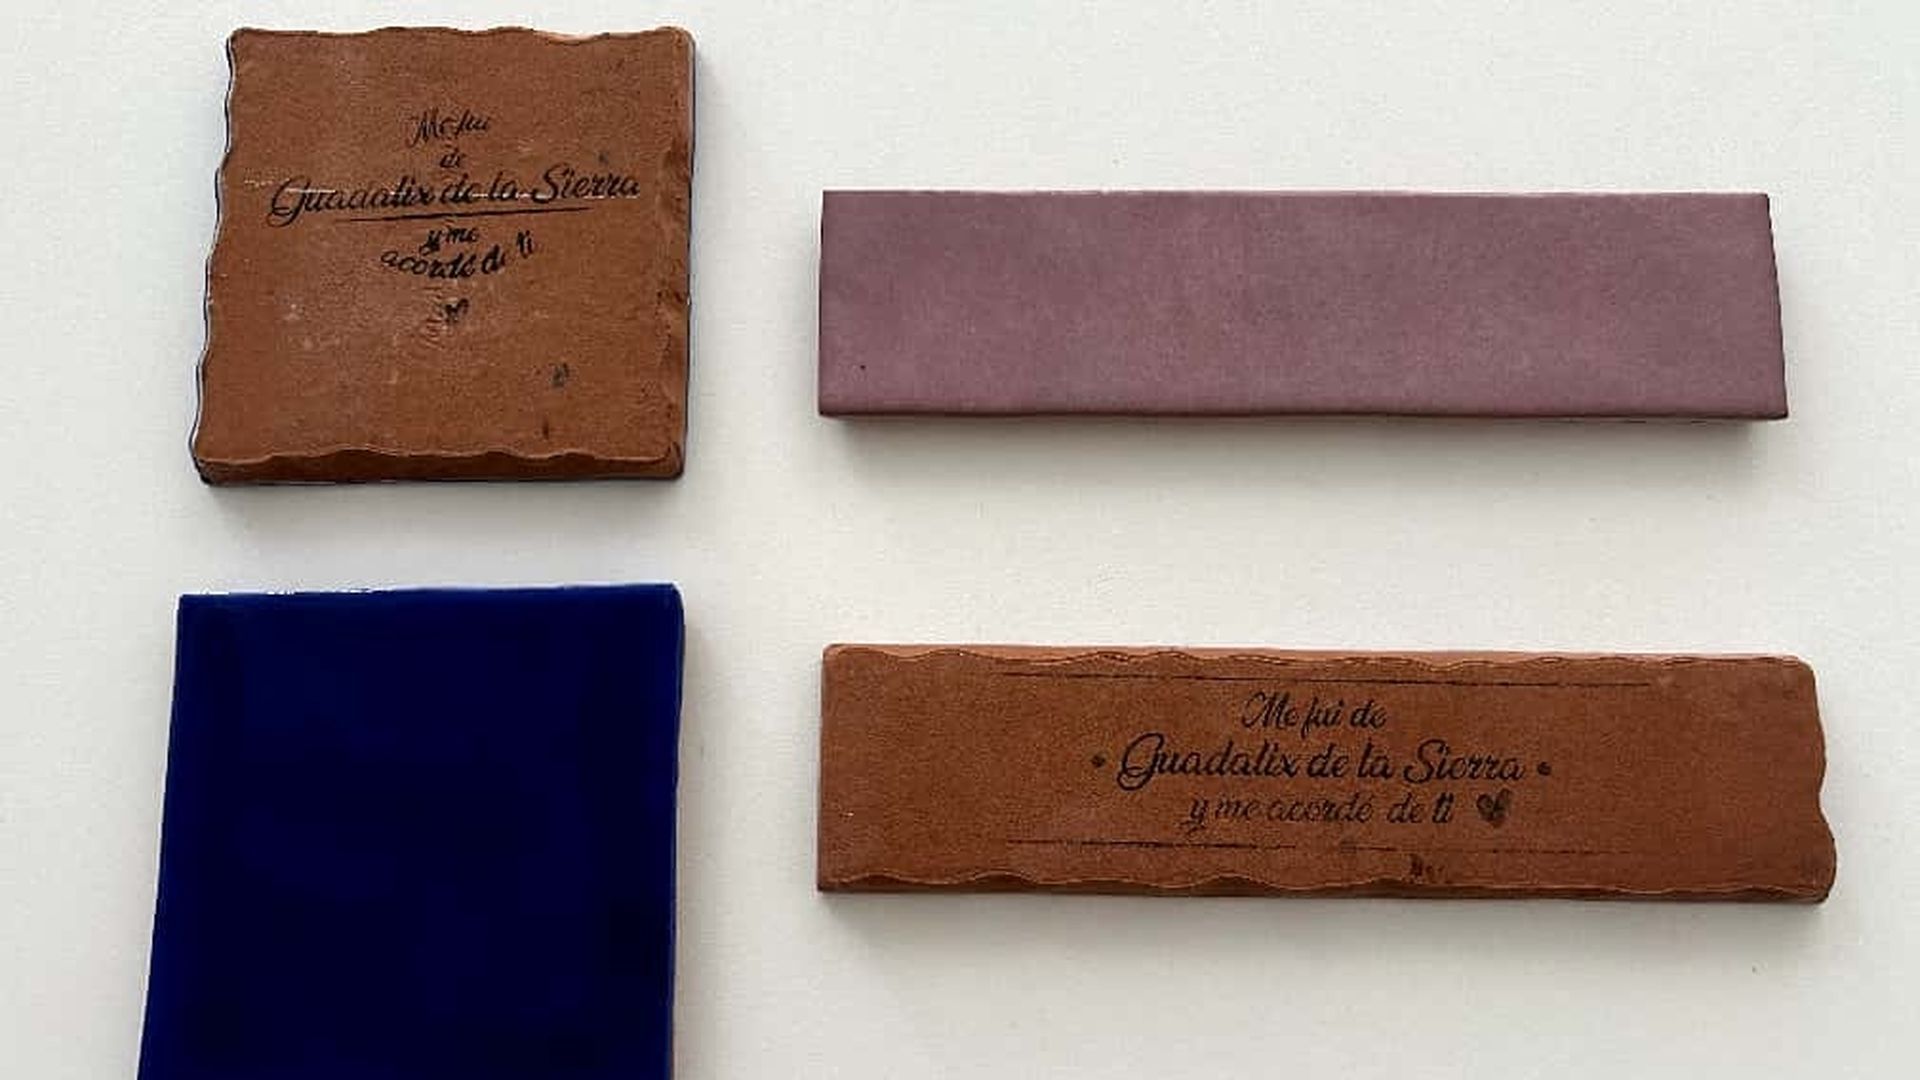 Me fui
de
Guadalix de la Sierra
y me
acordé de ti
Me fui de
Guadalix de la Sierra
y me acordé de ti